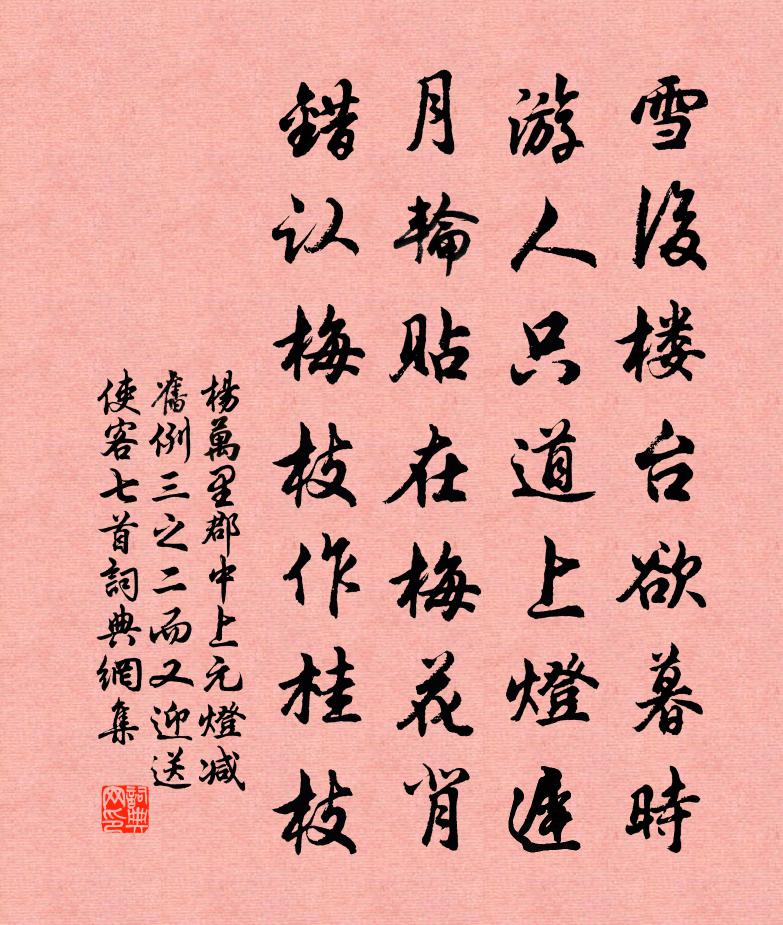 雪後楼台欲暮時
游人只道上燈遲
月輪貼在梅花背
錯认梅枝作桂枝
楊萬里郡中上元燈减
舊例三之二而又迎送
使客七首詞典網集
詞典网印